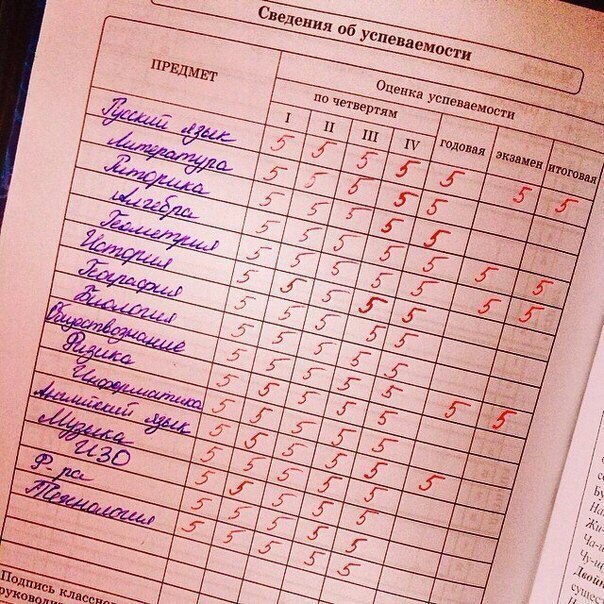 Сведения об успеваемости
ПРЕДМЕТ
Оценка успеваемости
по четвертям
I II III IV годовая экзамен итоговая
Русский язык 5 5 5 5 5 5 5
Литература 5 5 5 5 5
Риторика 5 5 5 5 5
Алгебра 5 5 5 5 5 5 5
Геометрия 5 5 5 5 5 5 5
История 5 5 5 5 5
География 5 5 5 5 5
Биология 5 5 5 5 5
Обществознание 5 5 5 5 5 5 5
Физика 5 5 5 5 5
Информатика 5 5 5 5 5 5
Английский язык 5 5 5 5 5
Музыка 5 5 5 5 5
ИЗО 5 5 5 5 5
Ф-ра 5 5 5 5 5
Технология 5 5 5 5 5
Подпись
руковод
Бу
На
Жи-
Ча-
Чу-щ
Двойн
сущес